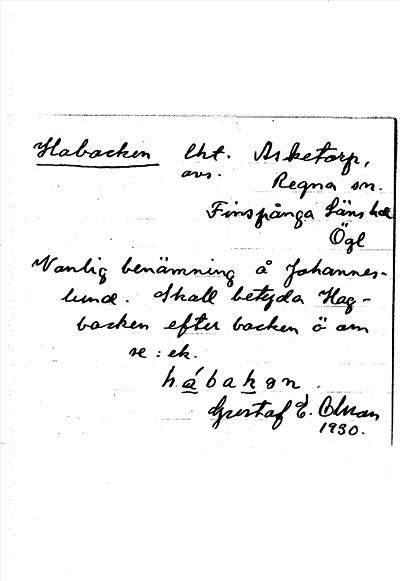 Habacken lht. Asketorp,
avs. Regna sn.
Finspånga Läns hd
Ögl
Vanlig benämning å Johannes-
lund. Skall betyda Hag-
backen efter backen ö om
se : ek.
hábakən.
Gustaf E. Olman
1930.